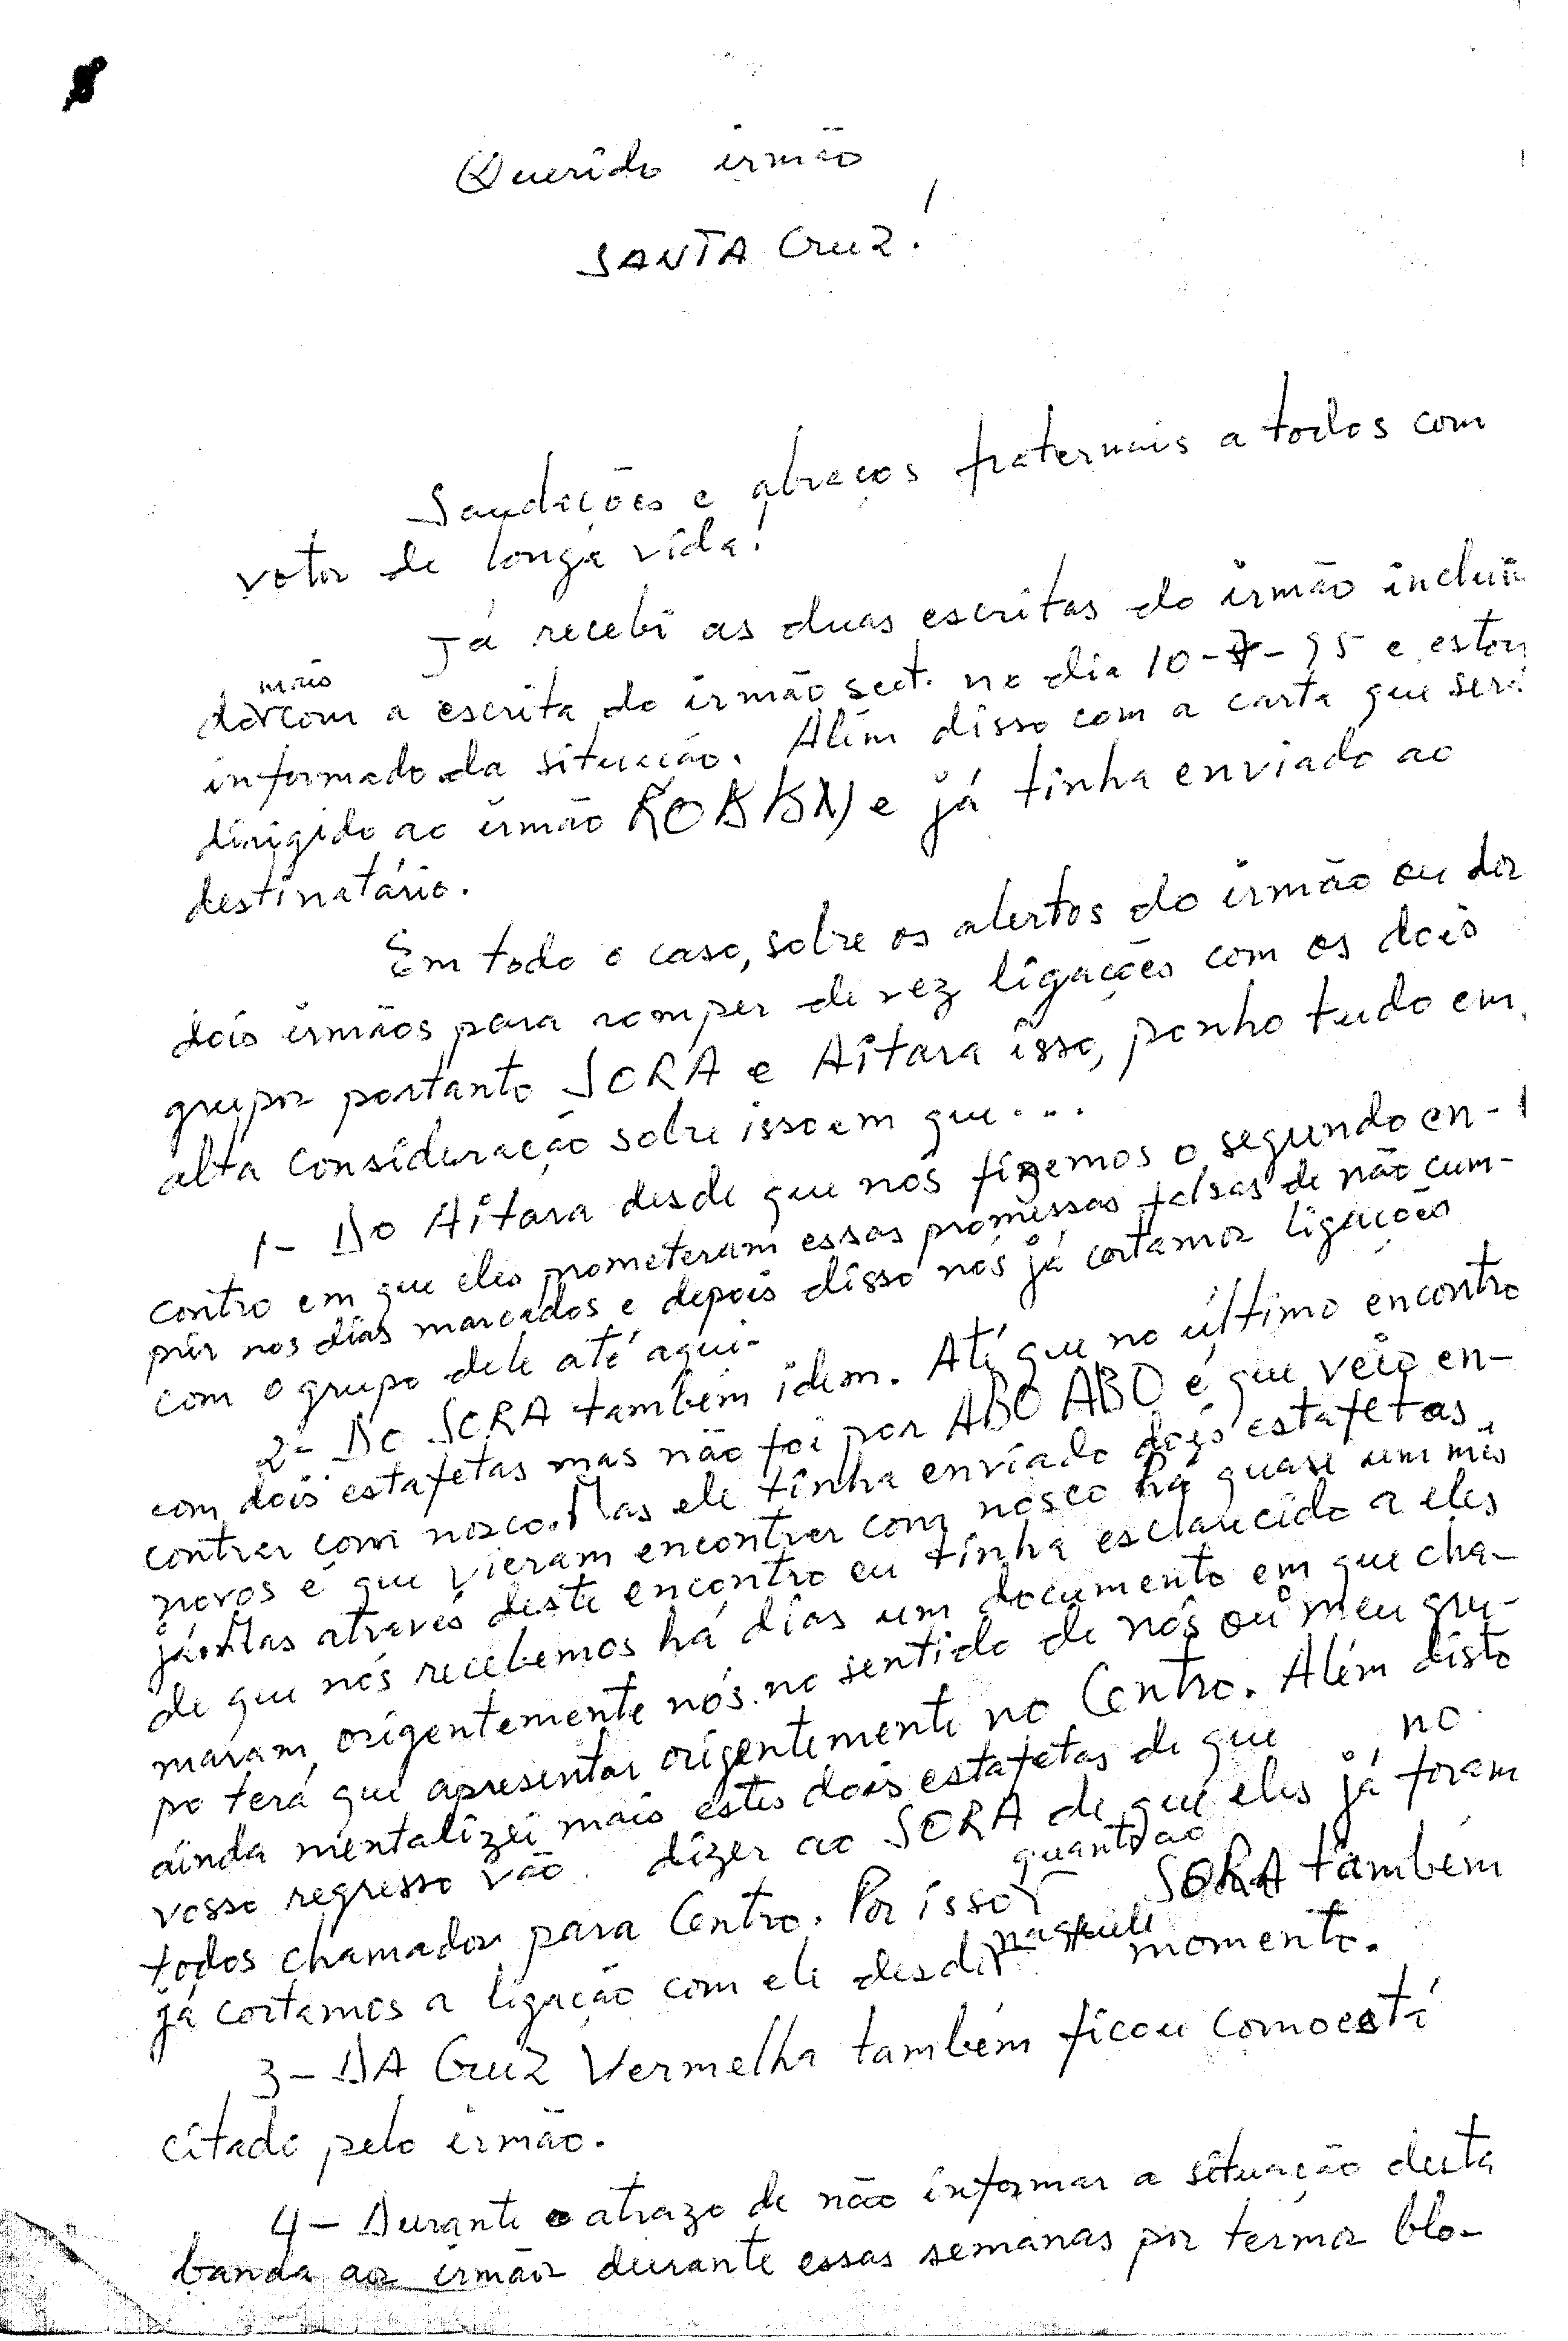 Querido irmão
SANTA Cruz!
Saudações e abraços fraternais a todos com
votos de longa vida!
Já recebi as duas escritas do irmão incluin
mais
do com a escrita do irmão sect. no dia 10-7-95 e estou
informado da situação. Além disso com a carta que será
dirigido ao irmão e já tinha enviado ao
destinatário.
Em todo o caso, sobre os alertos do irmão ou dos
dois irmãos para romper de vez ligações com os dois
grupos portanto SORA e Aitara isso, ponho tudo em
alta consideração sobre isso em que...
1- Do Aitara desde que nós fizemos o segundo en-
contro em que eles prometeram essas promessas falsas de não cum-
prir nos dias marcados e depois disso nós já cortamos ligações
com o grupo dele até aqui.
2- Do SORA também idem. Até que no último encontro
com dois estafetas mas não foi por ABO ABO é que veio en-
contrar com nosco. Mas ele tinha enviado dois estafetas
novos é que vieram encontrar com nosco há quase um mês
já. Mas através deste encontro eu tinha esclarecido a eles
de que nós recebemos há dias um documento em que cha-
maram origentemente nós no sentido de nós ou meu gru-
po terá que apresentar origentemente no Centro. Além disto
ainda mentalizei mais estes dois estafetas de que no
vosso regresso vão dizer ao SORA de que eles já foram
todos chamados para Centro. Por isso quanto ao SORA também
já cortamos a ligação com ele desde naquele momento.
3- DA Cruz Vermelha também ficou como está
citado pelo irmão.
4- Durante o atrazo de não informar a situação desta
banda aos irmãos durante essas semanas por termos blo-